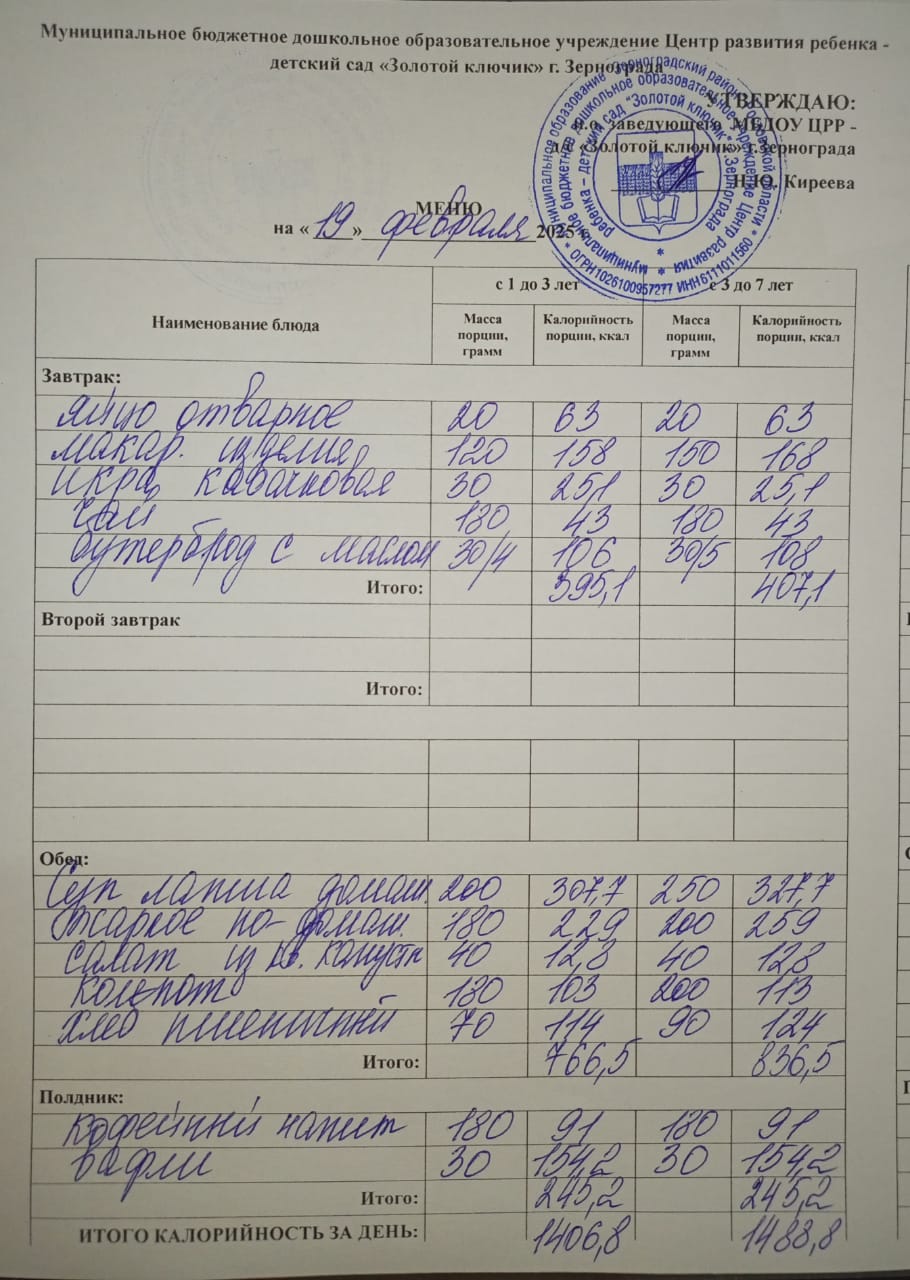 Муниципальное бюджетное дошкольное образовательное учреждение Центр развития ребенка -
детский сад «Золотой ключик» г. Зернограда
УТВЕРЖДАЮ:
и.о. заведующего МБДОУ ЦРР -
д/с «Золотой ключик» г.Зернограда
Н.Ю. Киреева
МЕНЮ
на «19» февраля 2025 г.
муниципальное бюджетное дошкольное образовательное учреждение Центр развития
ребенка – детский сад "Золотой ключик" г.Зернограда
ОГРН1026100957277 ИНН6111011560
Наименование блюда с 1 до 3 лет с 3 до 7 лет
Масса порции, грамм Калорийность порции, ккал Масса порции, грамм Калорийность порции, ккал
Завтрак:
яйцо отварное 20 63 20 63
макар. изделия 120 158 150 168
икра кабачковая 30 25,1 30 25,1
чай 180 43 180 43
бутерброд с маслом 30/4 106 30/5 108
Итого: 395,1 407,1
Второй завтрак
Итого:
Обед:
Суп лапша домаш. 200 307,7 250 327,7
Жаркое по-домаш. 180 229 200 259
салат из кв. капусты 40 12,8 40 12,8
компот 180 103 200 113
хлеб пшеничный 70 114 90 124
Итого: 766,5 836,5
Полдник:
кофейный напит 180 91 180 91
вафли 30 154,2 30 154,2
Итого: 245,2 245,2
ИТОГО КАЛОРИЙНОСТЬ ЗА ДЕНЬ: 1406,8 1488,8